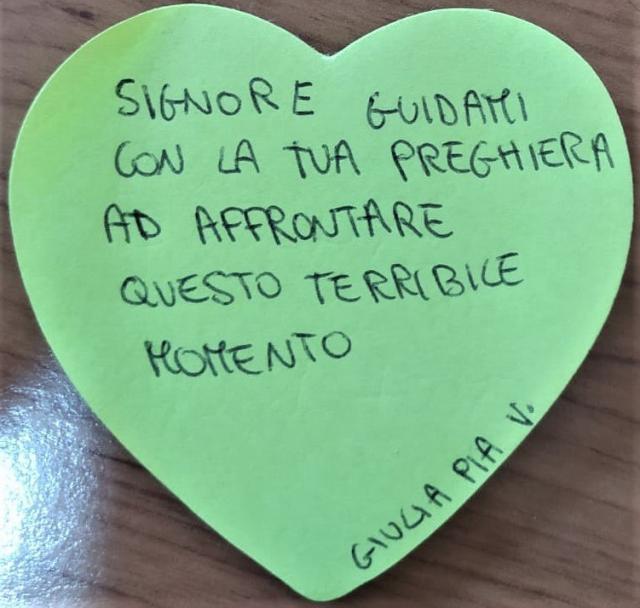 SIGNORE GUIDAMI
CON LA TUA PREGHIERA
AD AFFRONTARE
QUESTO TERRIBILE
MOMENTO
GIULIA PIA V.